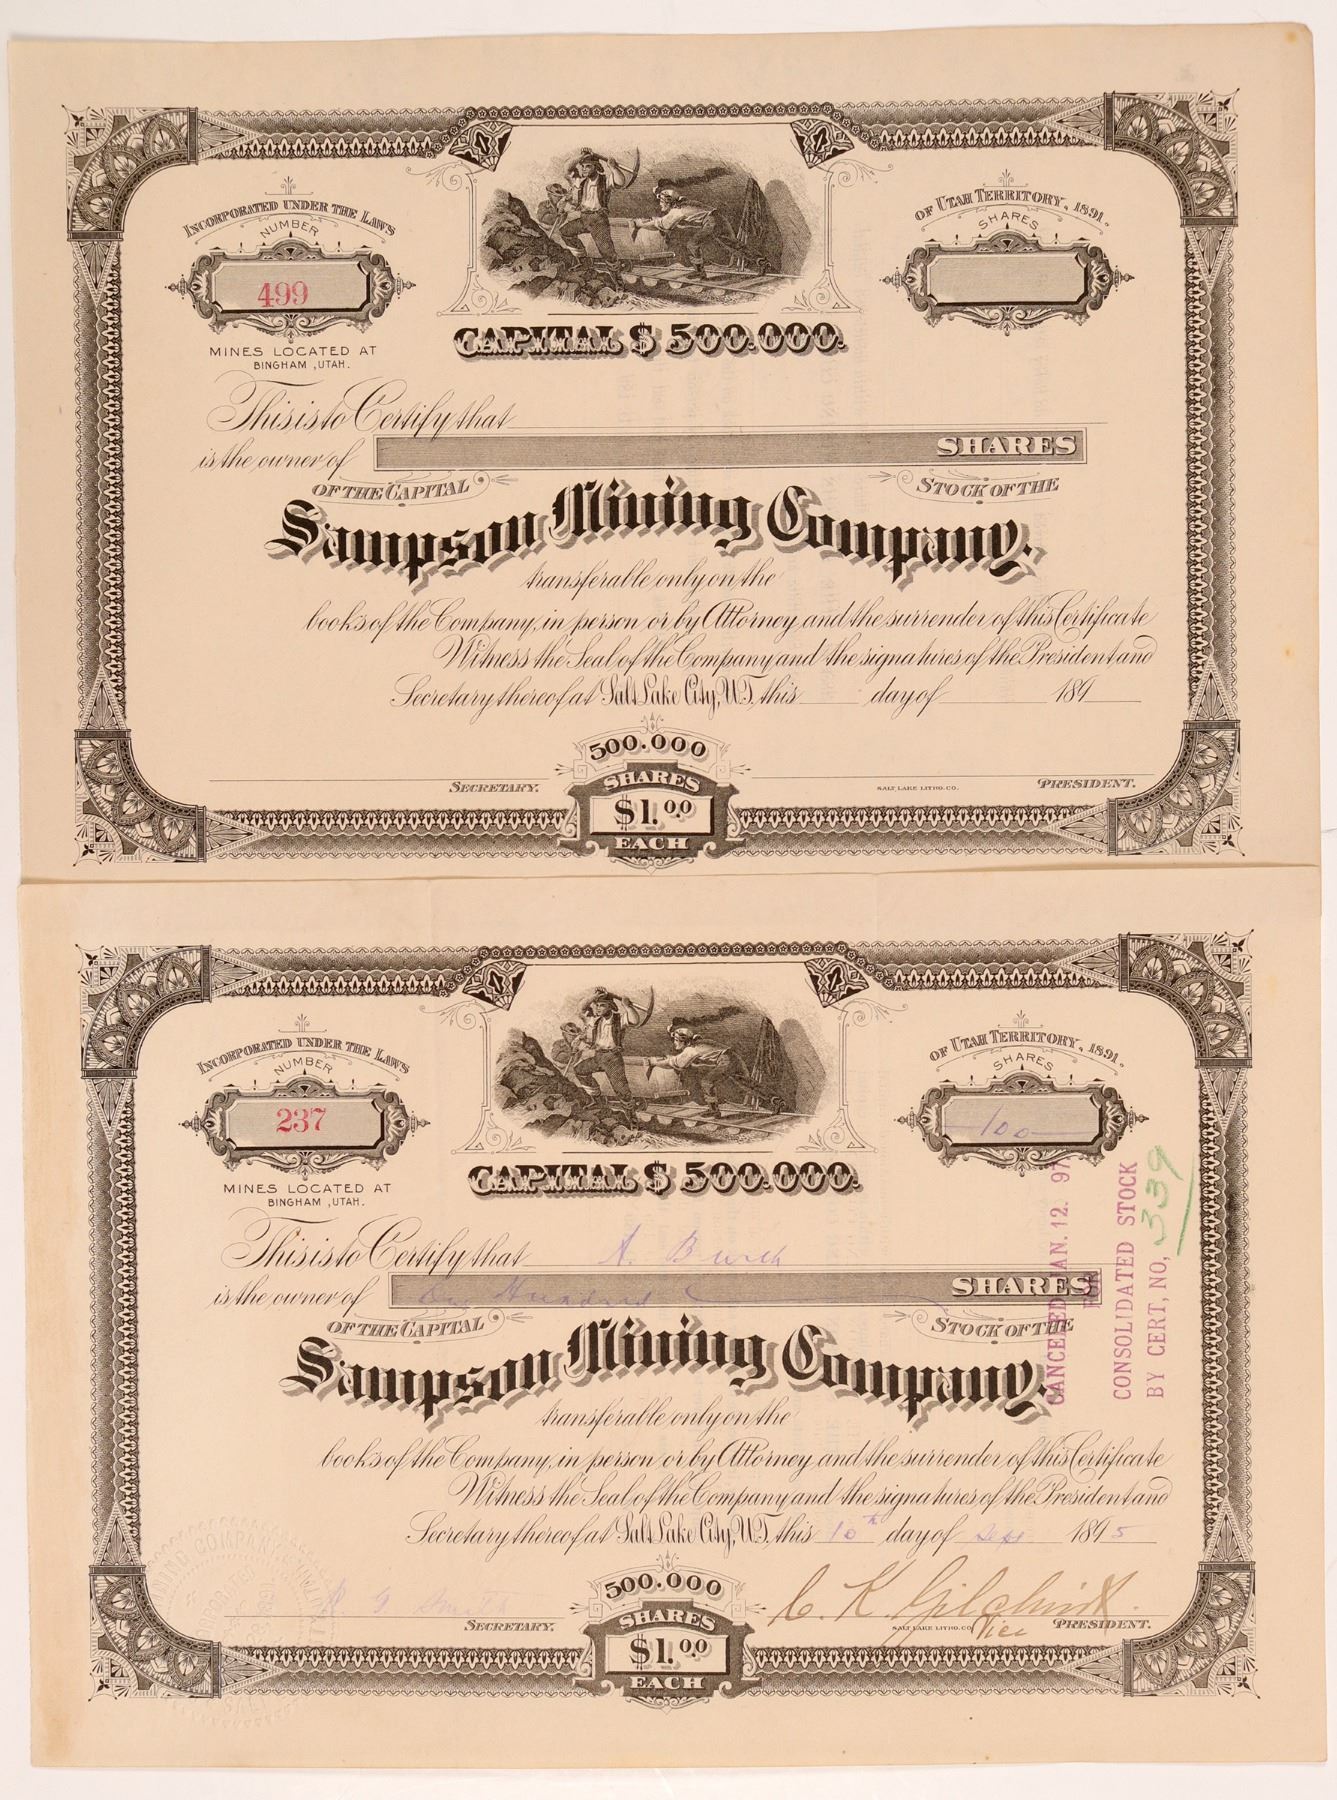 INCORPORATED UNDER THE LAWS
OF UTAH TERRITORY, 1891.
NUMBER
SHARES
499
MINES LOCATED AT
BINGHAM, UTAH.
CAPITAL $ 500.000.
This is to Certify that
is the owner of SHARES
OF THE CAPITAL STOCK OF THE
Sampson Mining Company.
transferable only on the
books of the Company, in person or by Attorney and the surrender of this Certificate
Witness the Seal of the Company and the signatures of the President and
Secretary thereof at Salt Lake City, U.T. this day of 189
500.000
SECRETARY. SHARES SALT LAKE LITHO. CO. PRESIDENT.
$1.00
EACH
INCORPORATED UNDER THE LAWS
OF UTAH TERRITORY, 1891.
NUMBER
SHARES
237
100
MINES LOCATED AT
BINGHAM, UTAH.
CAPITAL $ 500.000.
This is to Certify that A. Burch
is the owner of One Hundred SHARES
OF THE CAPITAL STOCK OF THE
Sampson Mining Company.
transferable only on the
books of the Company, in person or by Attorney and the surrender of this Certificate
Witness the Seal of the Company and the signatures of the President and
Secretary thereof at Salt Lake City, U.T. this 10th day of Sept 1895
500.000
Smith C. K. Gilchrist
SECRETARY. SHARES SALT LAKE LITHO. CO. Vice PRESIDENT.
$1.00
EACH
CANCELED JAN. 12. 97
FOR
CONSOLIDATED STOCK
BY CERT, NO, 339